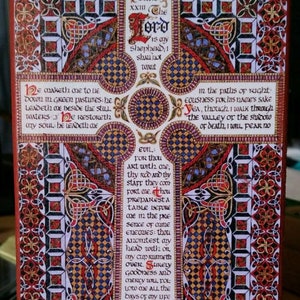 XXIII
the
Lord
is my
Shepherd; I
shall not
want.
He maketh me to lie
down in green pastures: he
leadeth me beside the still
waters. He restoreth
my soul: he leadeth me
in the paths of right-
eousness for his name's sake
Yea, though I walk through
the valley of the shadow
of death, I will fear no
evil:
for thou
art with me;
thy rod and thy
staff they com-
fort me. Thou
preparest a
table before
me in the pre-
sence of mine
enemies: thou
anointest my
head with oil;
my cup runneth
over. Surely
goodness and
mercy will fol-
low me all the
days of my life